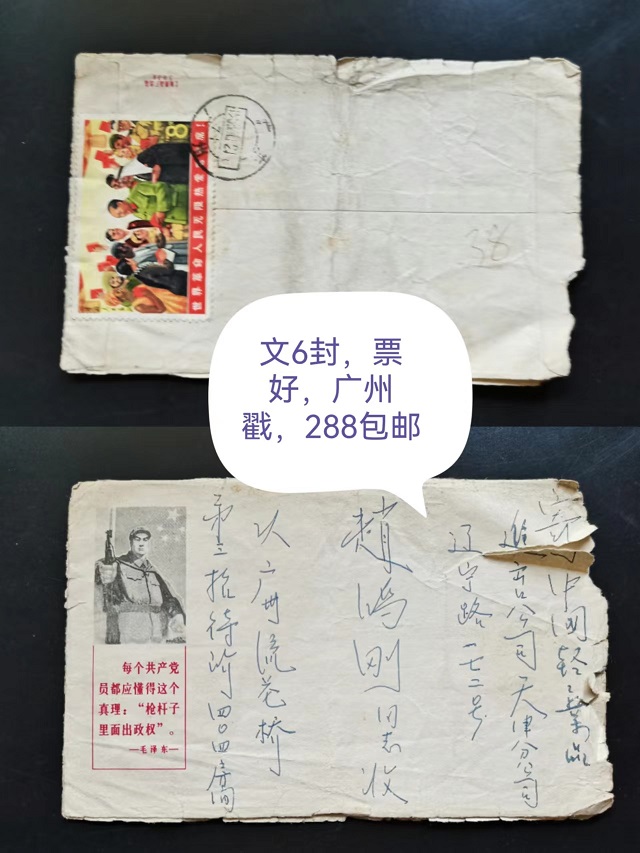 8
世界革命人民无限热爱
38
文6封，票
好，广州
戳，288包邮
寄中國轻工業品
進出口公司天津分公司
辽宁路一七二号
趙鸿刚同志收
从广州流花桥
第三招待所四〇四房间
每个共产党
员都应懂得这个
真理：“枪杆子
里面出政权”。
—毛泽东—